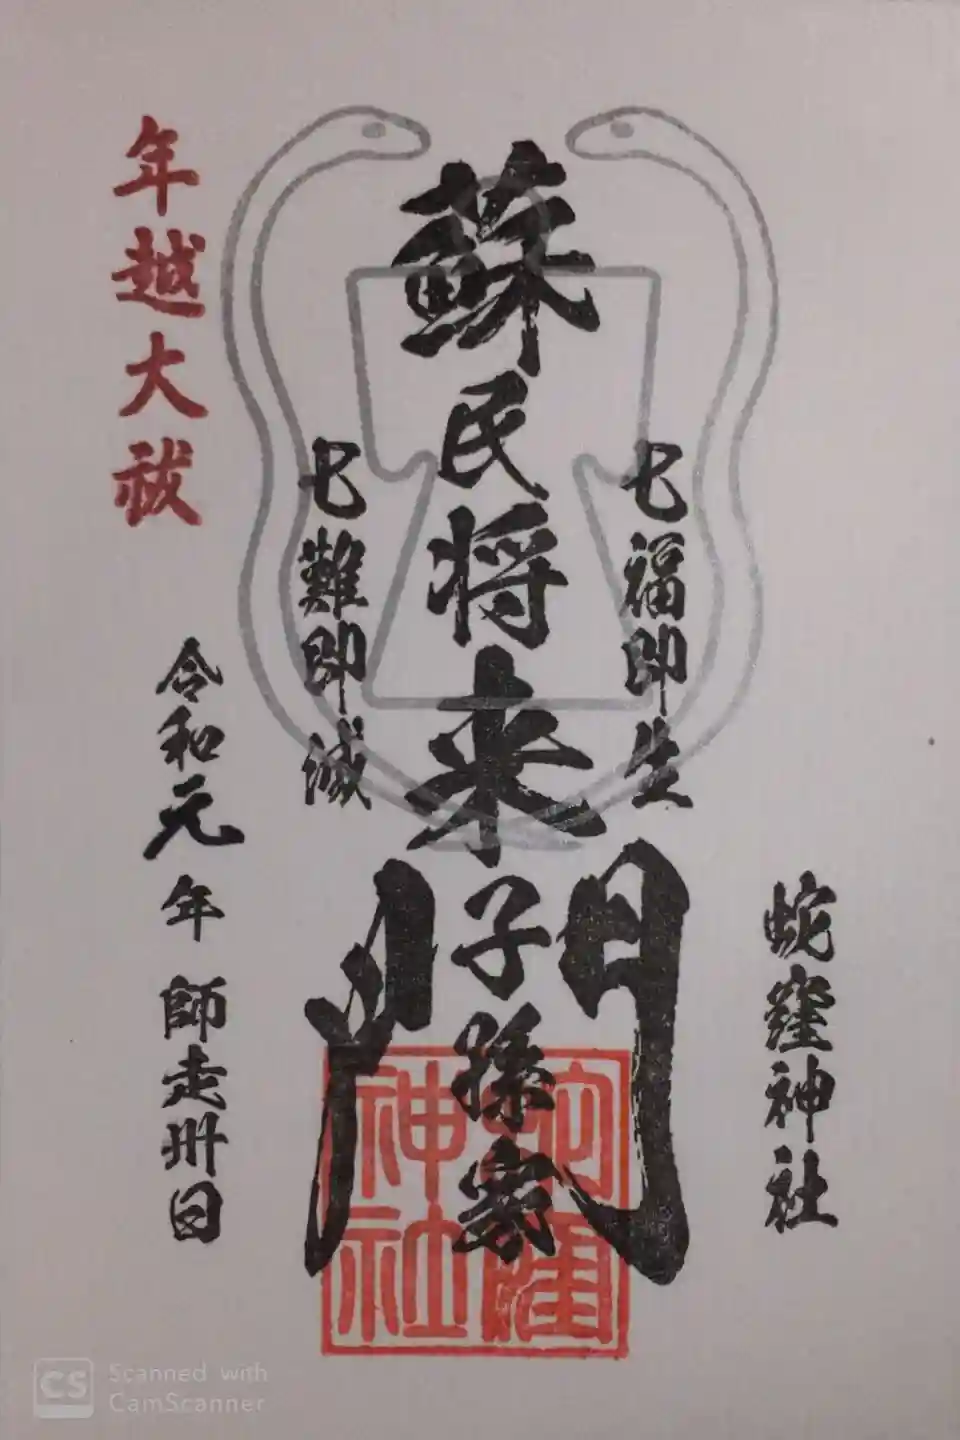 蛇窪神社
七福即生
蘇民将来子孫家門
七難即滅
年越大祓
令和元年師走卅日
蛇窪神社
CS Scanned with
CamScanner